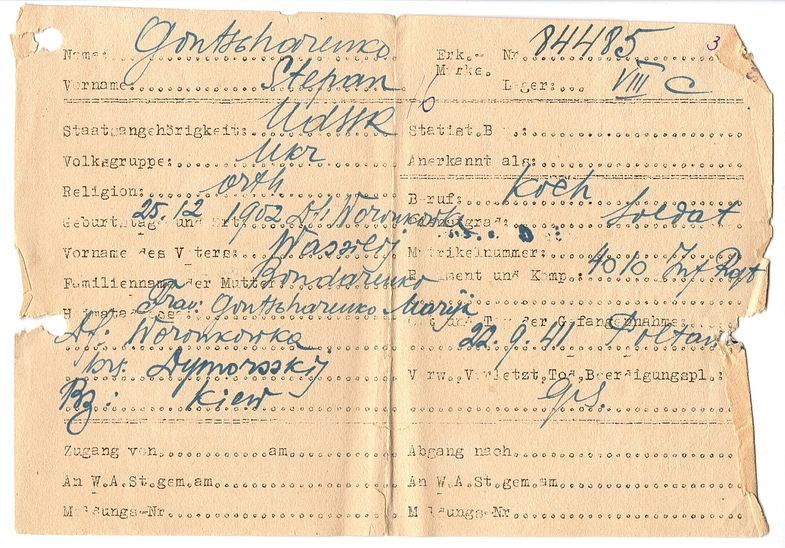 Name: Gontscharenko
Vorname: Stepan
Staatsangehörigkeit: UdSSR
Volksgruppe: Ukr
Religion: orth
Geburtstag und Ort: 25.12 1902 Df: Woronkowka
Vorname des Vaters: Wassilij
Familienname der Mutter: Bondarenko
Frau: Gontscharenko Marija
Df: Woronkowka
Dymorsskij
Bz: Kiew
Zugang von am
An W.A.St.gem.am
Meldungs-Nr
3
Erk.- Nr 84485
Marke. Lager: VIII C
Statist.B
Anerkannt als:
Beruf: Koch
Soldat
Matrikelnummer:
Regiment und Komp.: 4010 Inf Rgt
Gefangennahme:
22.9.41 Poltawa
Verw.Verletzt,Tod,Beerdigungspl.:
Abgang nach
An W.A.St.gem.am
Meldungs-Nr